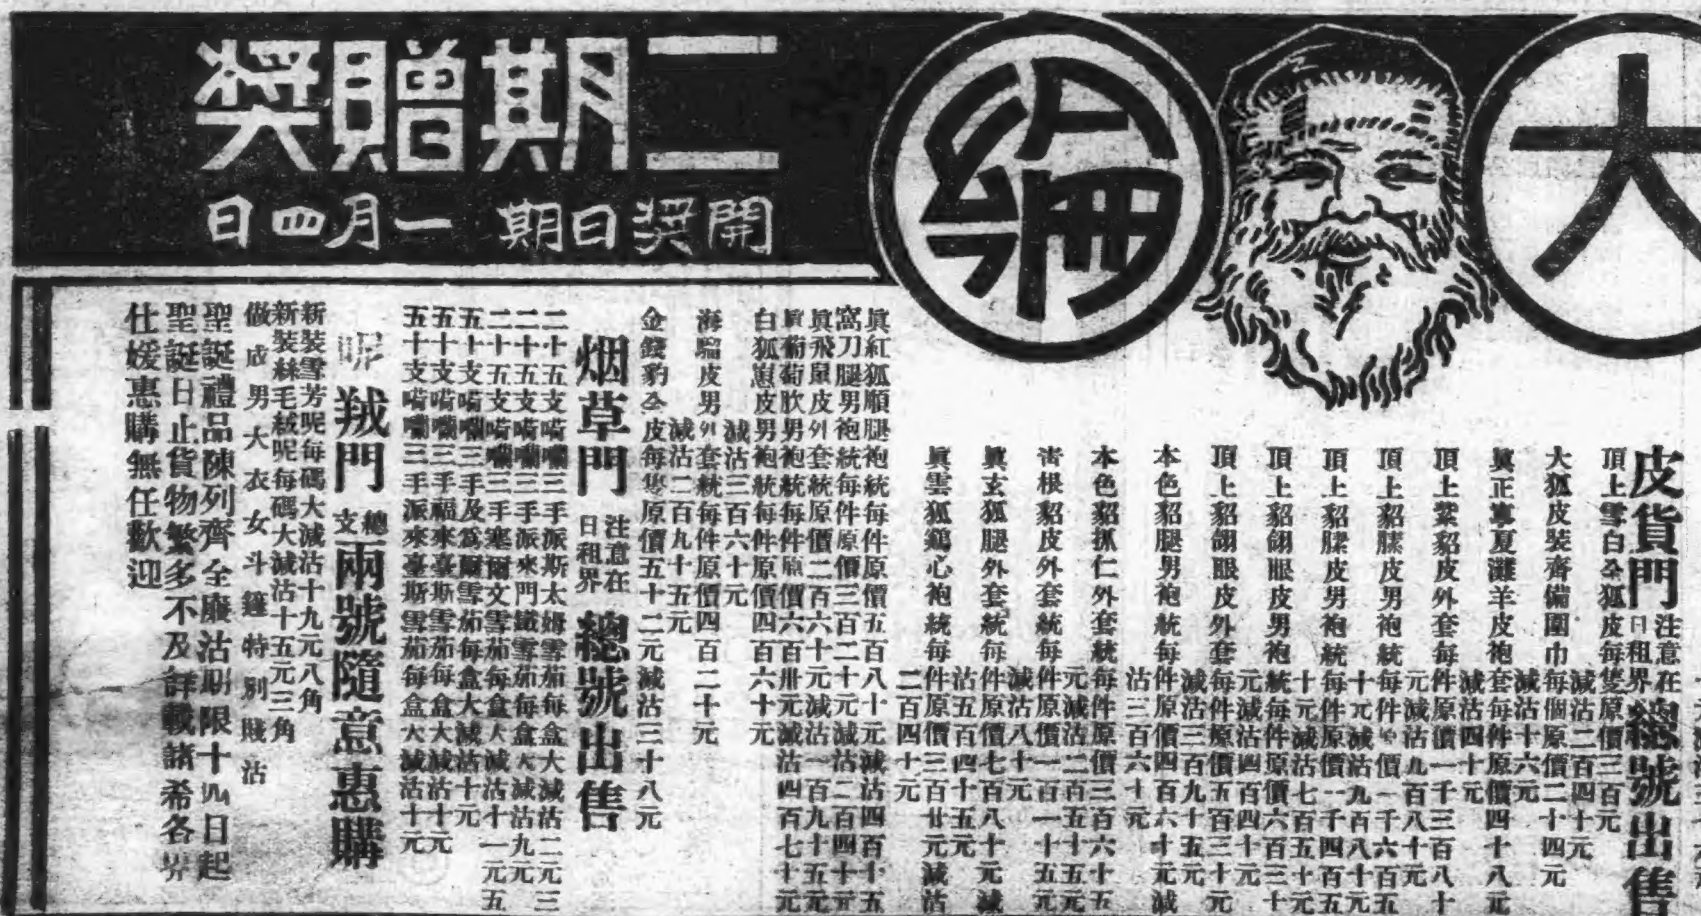 大綸
二期贈奬
開奬日期 一月四日
皮貨門 注意在日租界 總號出售
頂上雪白全狐皮每隻原價三百元
減沽二百四十元
大狐皮裝齊備圍巾每個原價二十四元
減沽十六元
眞正寧夏灘羊皮袍套每件原價四十八元
減沽四十元
頂上紫貂皮外套每件原價一千三百八十
元減沽九百八十元
頂上貂膆皮男袍統每件 價一千六百五
十元減沽九百八十元
頂上貂膆皮男袍統每件原價一千四百五
十元減沽七百五十元
頂上貂翎眼皮男袍統每件原價六百三十
元減沽四百四十元
頂上貂翎眼皮外套每件原價五百三十元
減沽三百九十五元
本色貂腿男袍統每件原價四百六十元減
沽三百六十元
本色貂抓仁外套統每件原價三百六十五
元減沽二百五十五元
靑根貂皮外套統每件原價一百一十五元
減沽八十元
眞玄狐腿外套統每件原價七百八十元減
沽五百四十五元
眞雲狐鷄心袍統每件原價三百廿元減沽
二百四十元
眞紅狐順腿袍統每件原價五百八十元減沽四百十五
窩刀腿男袍統每件原價三百二十元減沽二百四十元
眞飛鼠皮外套統原價二百六十元減沽一百九十五元
眞葡萄肷男袍統每件原價六百卅元減沽四百七十元
白狐崽皮男袍統每件原價四百六十元
減沽三百六十元
海騮皮男外套統每件原價四百二十元
減沽二百九十五元
金錢豹全皮每隻原價五十二元減沽三十八元
烟草門 注意在日租界 總號出售
二十五支嗬囒三手派斯太姆雪茄每盒大減沽二元三
二十五支嗬囒三手派來門鐵雪茄每盒大減沽九元
二十五支嗬囒三手塞爾文雪茄每盒大減沽十一元五
五十支嗬囒三手及爲爾雪茄每盒大減沽十元
五十支嗬囒三手福來臺斯雪茄每盒大減沽十元
五十支嗬囒三手派來臺斯雪茄每盒大減沽十元
呢羢門 總支兩號隨意惠購
新裝雪芳呢每碼大減沽十九元八角
新裝絲毛絨呢每碼大減沽十五元三角
做成男大衣女斗篷特別賤沽
聖誕禮品陳列齊全廉沽期限十 日起
聖誕日止貨物繁多不及詳載諸希各界
仕媛惠購無任歡迎